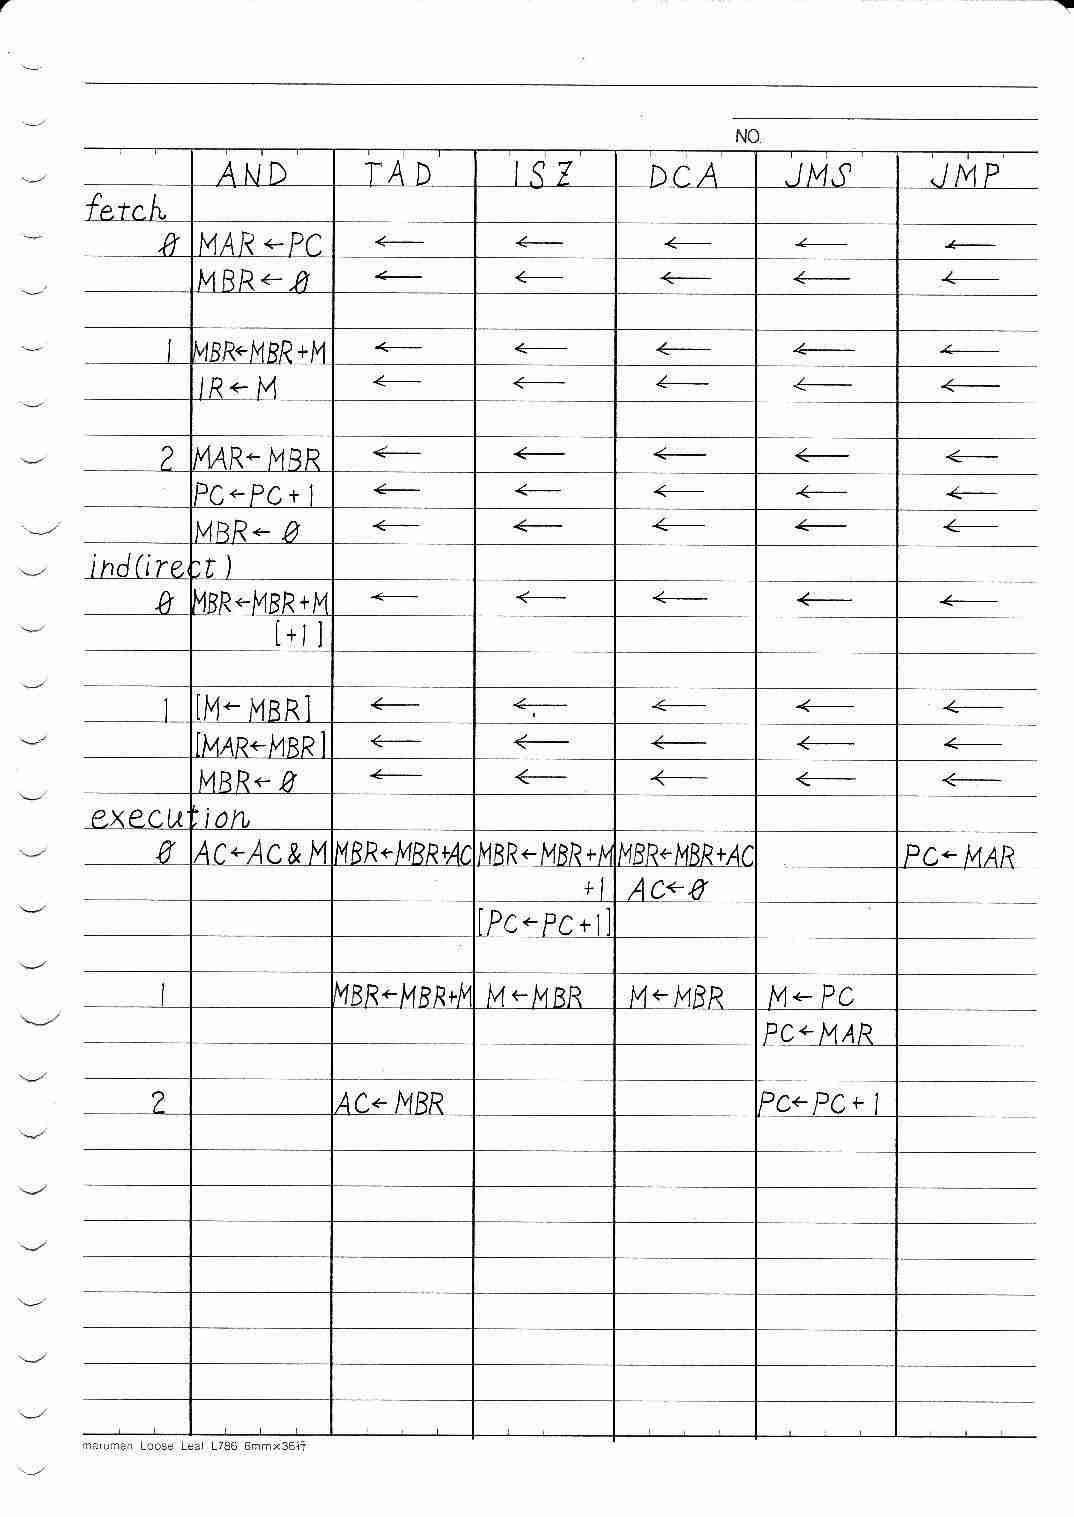 NO.
AND TAD ISZ DCA JMS JMP
fetch
0 MAR←PC ← ← ← ← ←
MBR←0 ← ← ← ← ←
1 MBR←MBR+M ← ← ← ← ←
IR←M ← ← ← ← ←
2 MAR←MBR ← ← ← ← ←
PC←PC+1 ← ← ← ← ←
MBR←0 ← ← ← ← ←
ind(irect)
0 MBR←MBR+M ← ← ← ← ←
[+1]
1 [M←MBR] ← ← ← ← ←
[MAR←MBR] ← ← ← ← ←
MBR←0 ← ← ← ← ←
execution
0 AC←AC&M MBR←MBR+AC MBR←MBR+M MBR←MBR+AC PC←MAR
+1 AC←0
[PC←PC+1]
1 MBR←MBR+M M←MBR M←MBR M←PC
PC←MAR
2 AC←MBR PC←PC+1
maruman Loose Leaf L786 6mm×36行